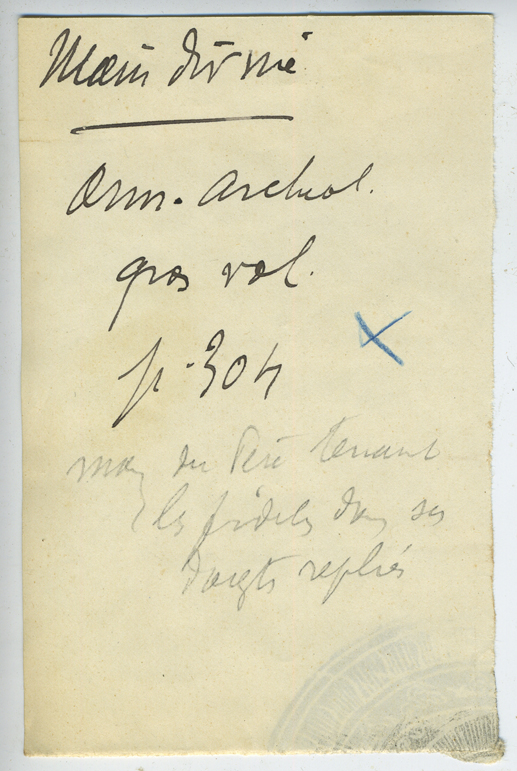 Main divine
Ann. Archéol.
gros vol.
p. 304
main du Père tenant
les fidèles dans ses
doigts repliés